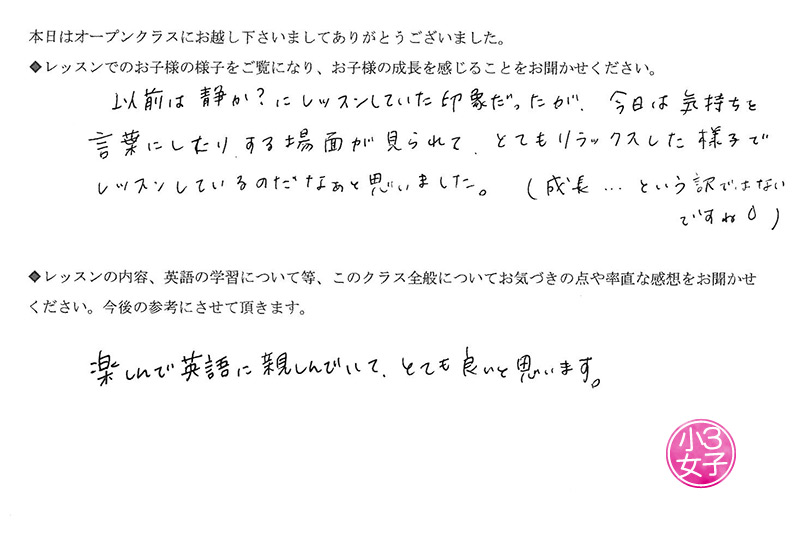 本日はオープンクラスにお越し下さいましてありがとうございました。
◆レッスンでのお子様の様子をご覧になり、お子様の成長を感じることをお聞かせください。
以前は静か？にレッスンしていた印象だったが、今日は気持ちを
言葉にしたり、する場面が見られて、とてもリラックスした様子で
レッスンしているのだなぁと思いました。（成長…という訳ではない
ですね）
◆レッスンの内容、英語の学習について等、このクラス全般についてお気づきの点や率直な感想をお聞かせ
ください。今後の参考にさせて頂きます。
楽しんで英語に親しんでいて、とても良いと思います。
小3
女子